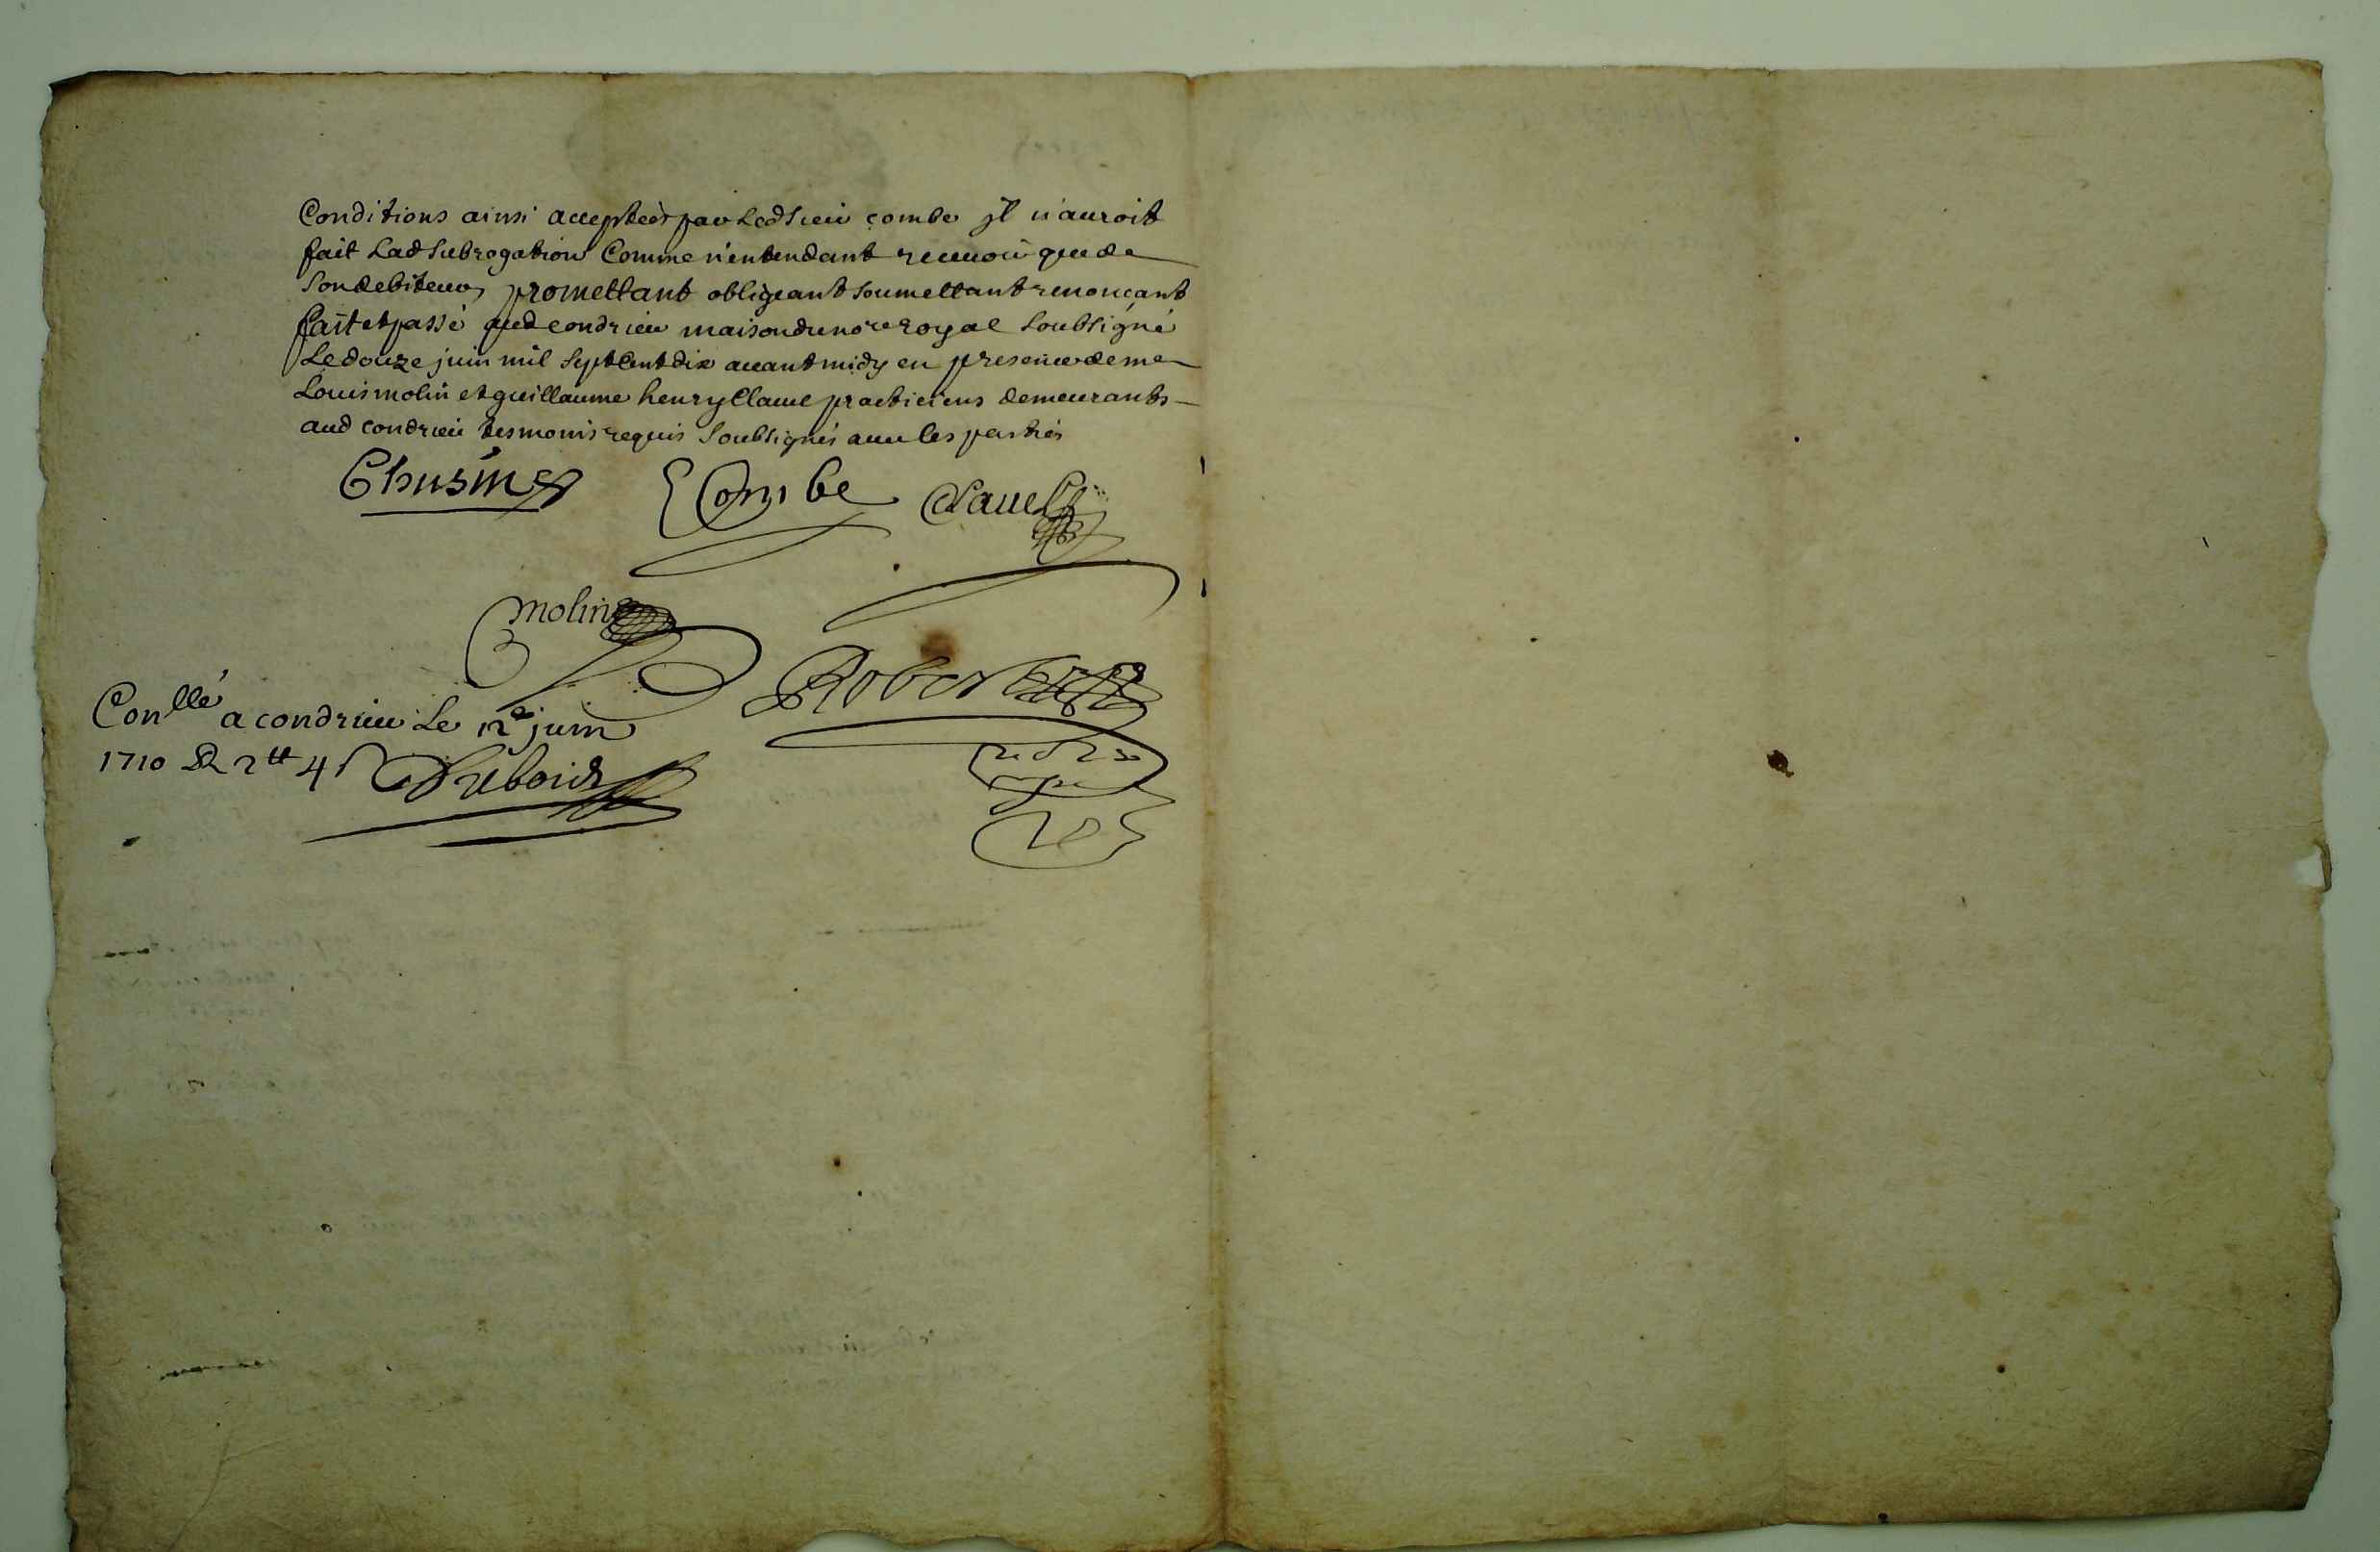 Conditions ainsi accepteés par Led Sieur combe jl n'auroit
fait Lad Subrogation Comme n'entendant recevoir que de
Son debiteur, promettant obligeant Soumettant renonçant
fait et passé aud condrieu maison du no.re royal Soubsigné
Le douze juin mil Sept Cent dix avant midy en presence de me
Louis molin et guillaume henry Clavel practiciens demeurants
aud condrieu tesmoins requis Soubsignés avec les parties
Combe Clavel
molin
Robert
Con.llé a condrieu Le 12e juin
1710 R 2tt 4s Dubois